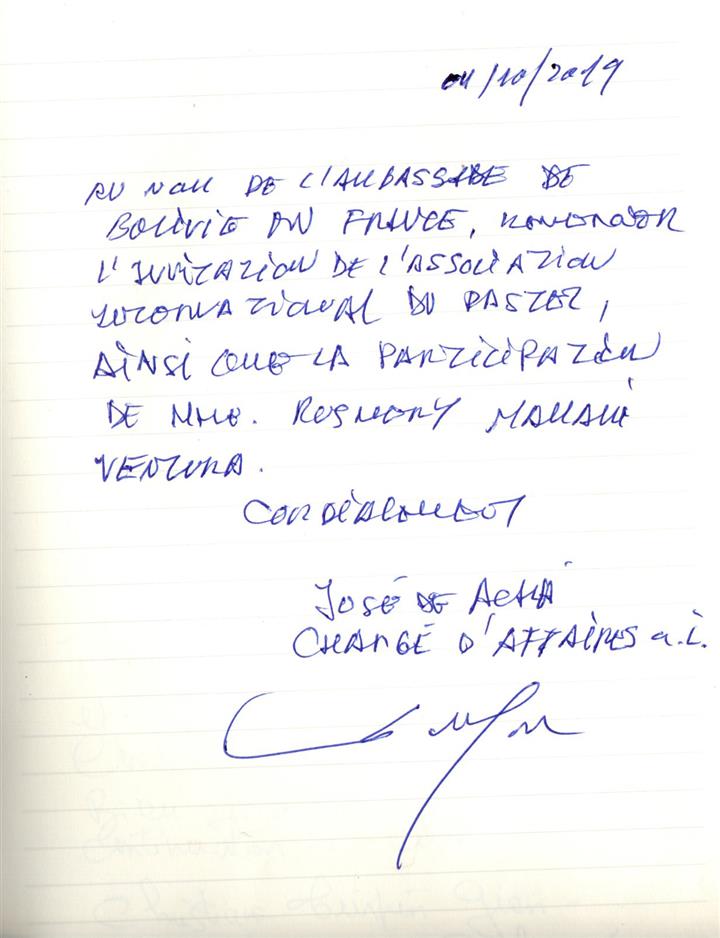 04/10/2019
AU NOM DE L'AMBASSADE DE
BOLIVIE EN FRANCE, REMERCIER
L'INVITATION DE L'ASSOCIATION
INTERNATIONAL DU PASTEL,
AINSI QUE LA PARTICIPATION
DE MME. ROSMERY MAMANI
VENTURA.
CORDIALEMENT
JOSÉ DE ACHÁ
CHARGÉ D'AFFAIRES a.i.